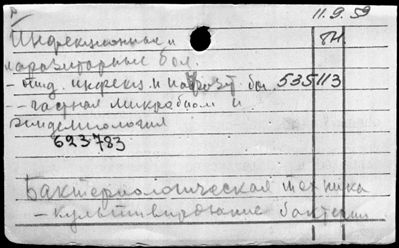 11.9.59
Инфекционные и
паразитарные бол.
- инд. инфекц. и паразит бол. 535113
- частная микробиом и
эпидемиология
623783
Бактериологическая техника
- культивирование бактерий